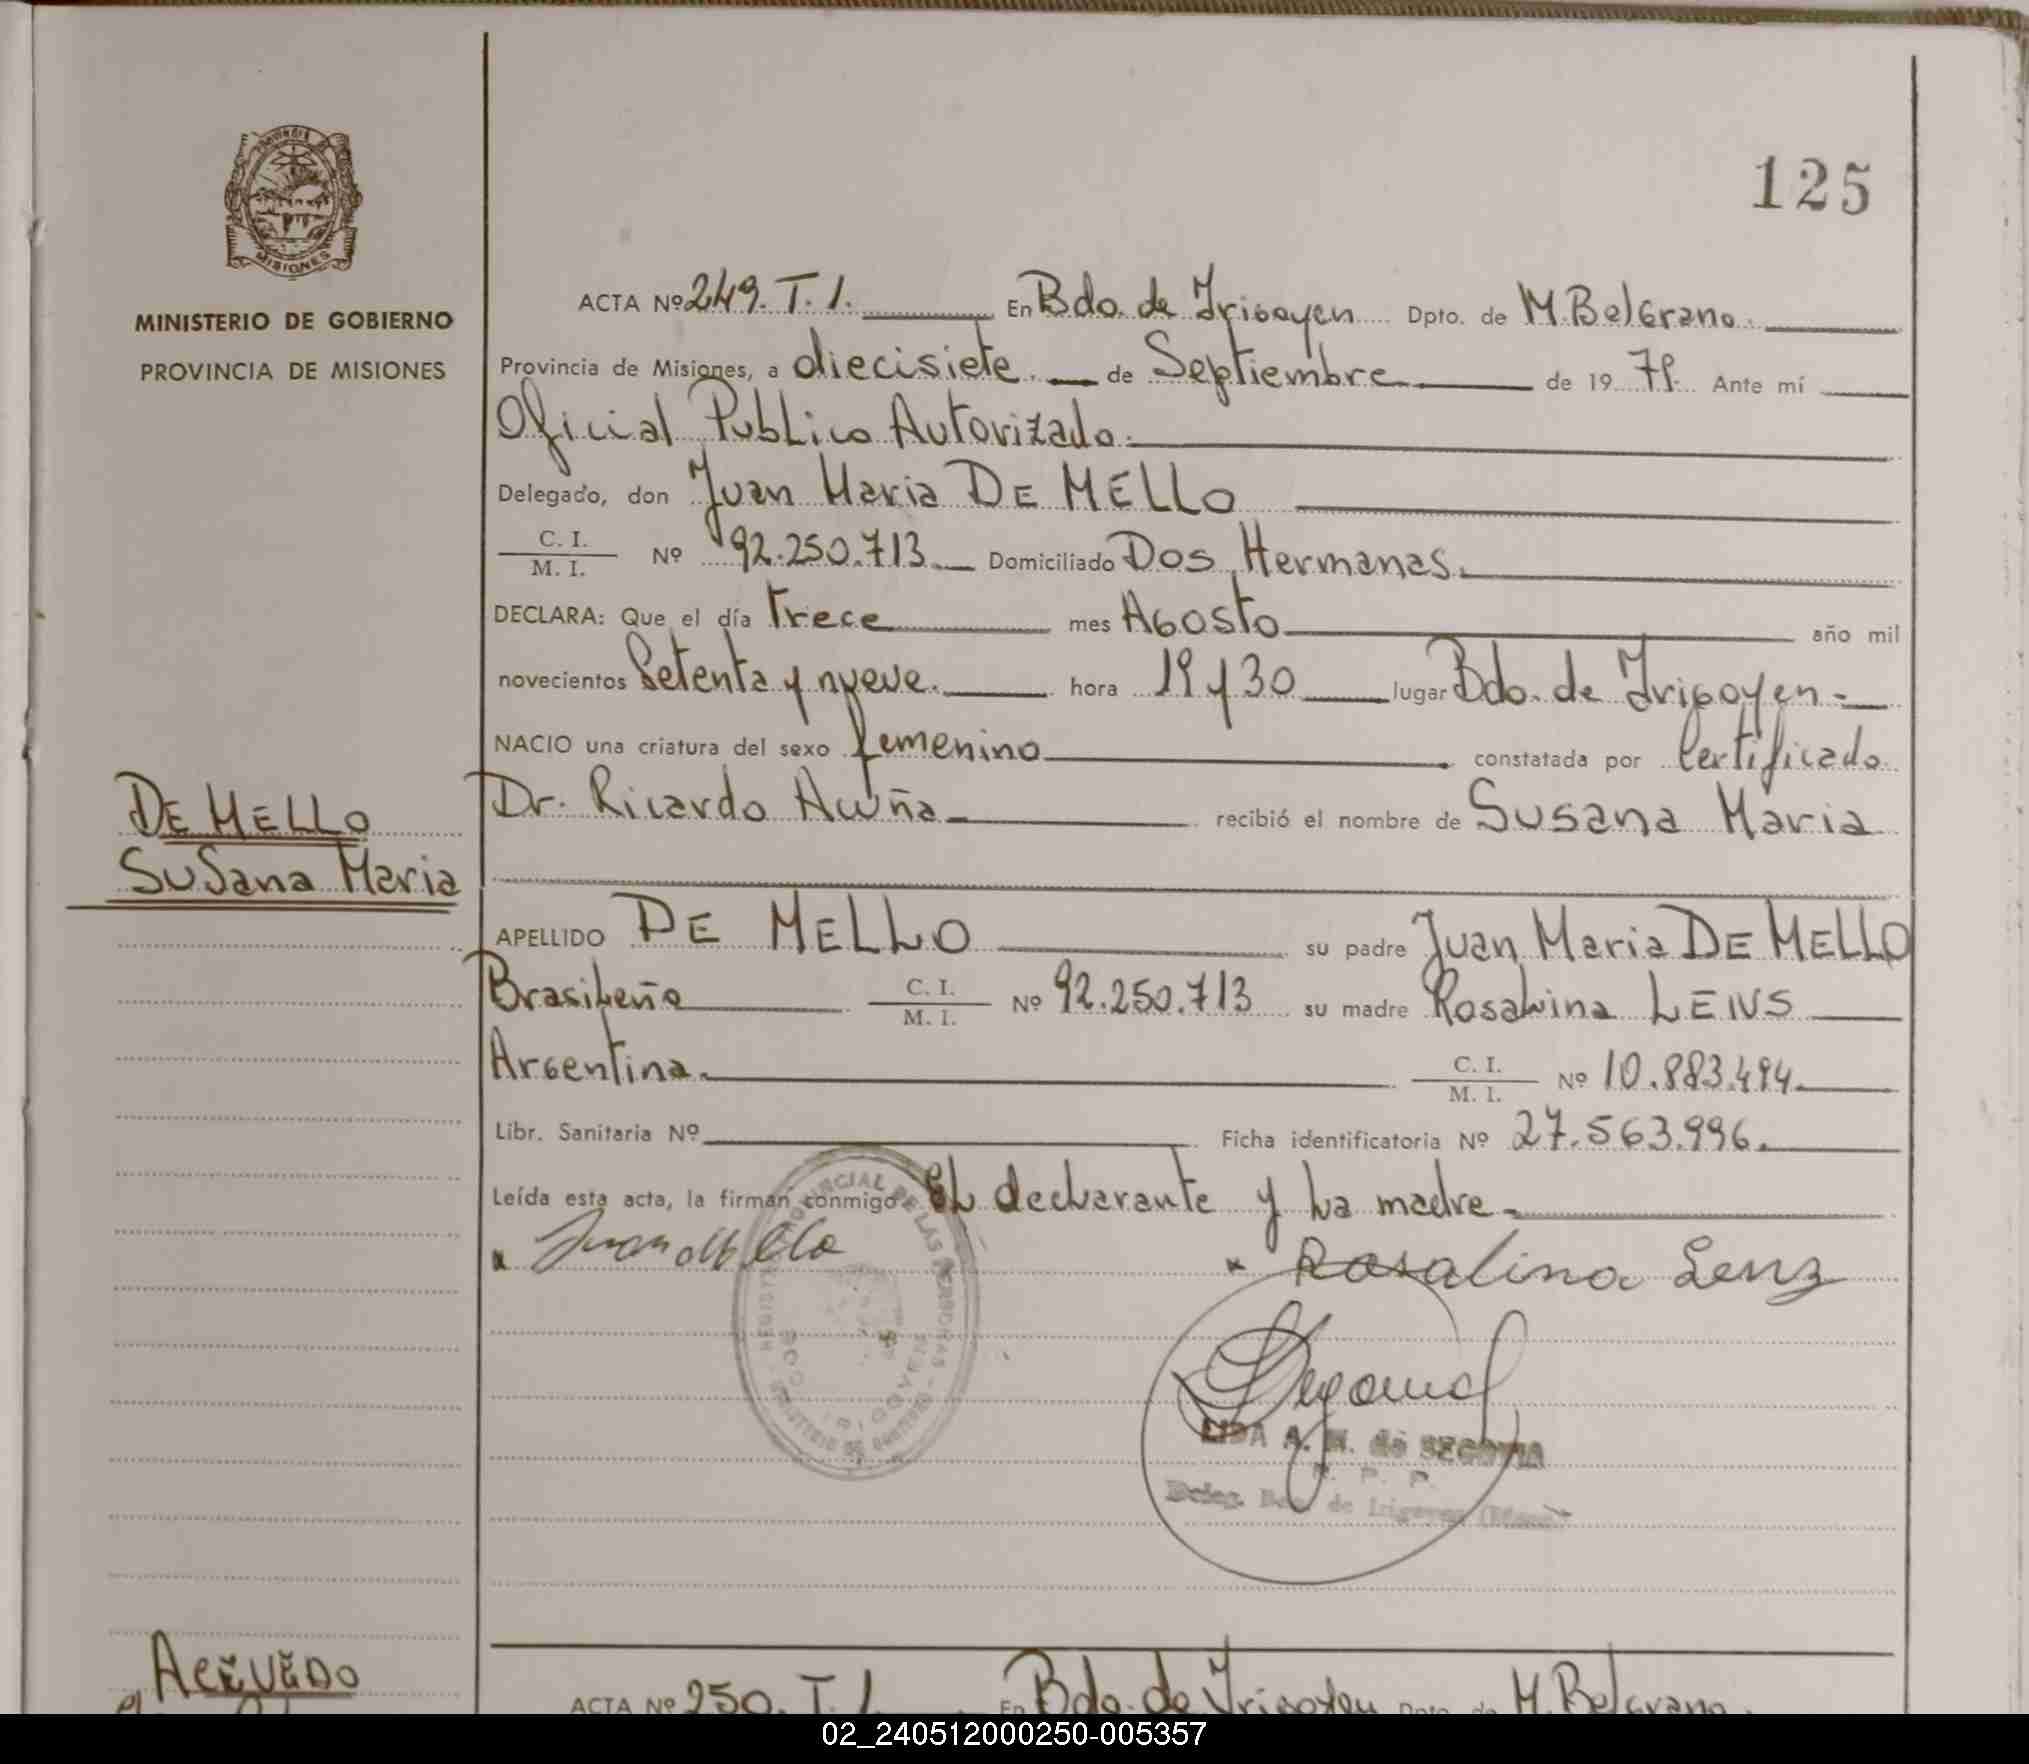 125
PROVINCIA DE
MISIONES
MINISTERIO DE GOBIERNO
PROVINCIA DE MISIONES
ACTA Nº 249. T. 1. En Bdo. de Irigoyen Dpto. de M. Belgrano.
Provincia de Misiones, a diecisiete. de Septiembre de 19 79. Ante mí
Oficial Publico Autorizado.
Delegado, don Juan Maria DE MELLO
C. I.
M. I. Nº 92.250.713. Domiciliado Dos Hermanas.
DECLARA: Que el día trece mes Agosto año mil
novecientos Setenta y nueve. hora 19 y 30 lugar Bdo. de Irigoyen.
NACIO una criatura del sexo femenino constatada por Certificado
Dr. Ricardo Acuña recibió el nombre de Susana Maria
DE MELLO
Susana Maria
APELLIDO DE MELLO su padre Juan Maria DE MELLO
Brasileño C. I.
M. I. Nº 92.250.713 su madre Rosalina LENS
Argentina. C. I.
M. I. Nº 10.883.494.
Libr. Sanitaria Nº Ficha identificatoria Nº 27.563.996.
Leída esta acta, la firman conmigo El declarante y La madre.
Rosalina Lenz
LIDA A. M. de SEGOVIA
R. P. P.
Deleg. Bdo. de Irigoyen (Mnes.)
ACEVEDO
ACTA Nº 250. T. 1. En Bdo. de Irigoyen Dpto. de M. Belgrano.
02_240512000250-005357